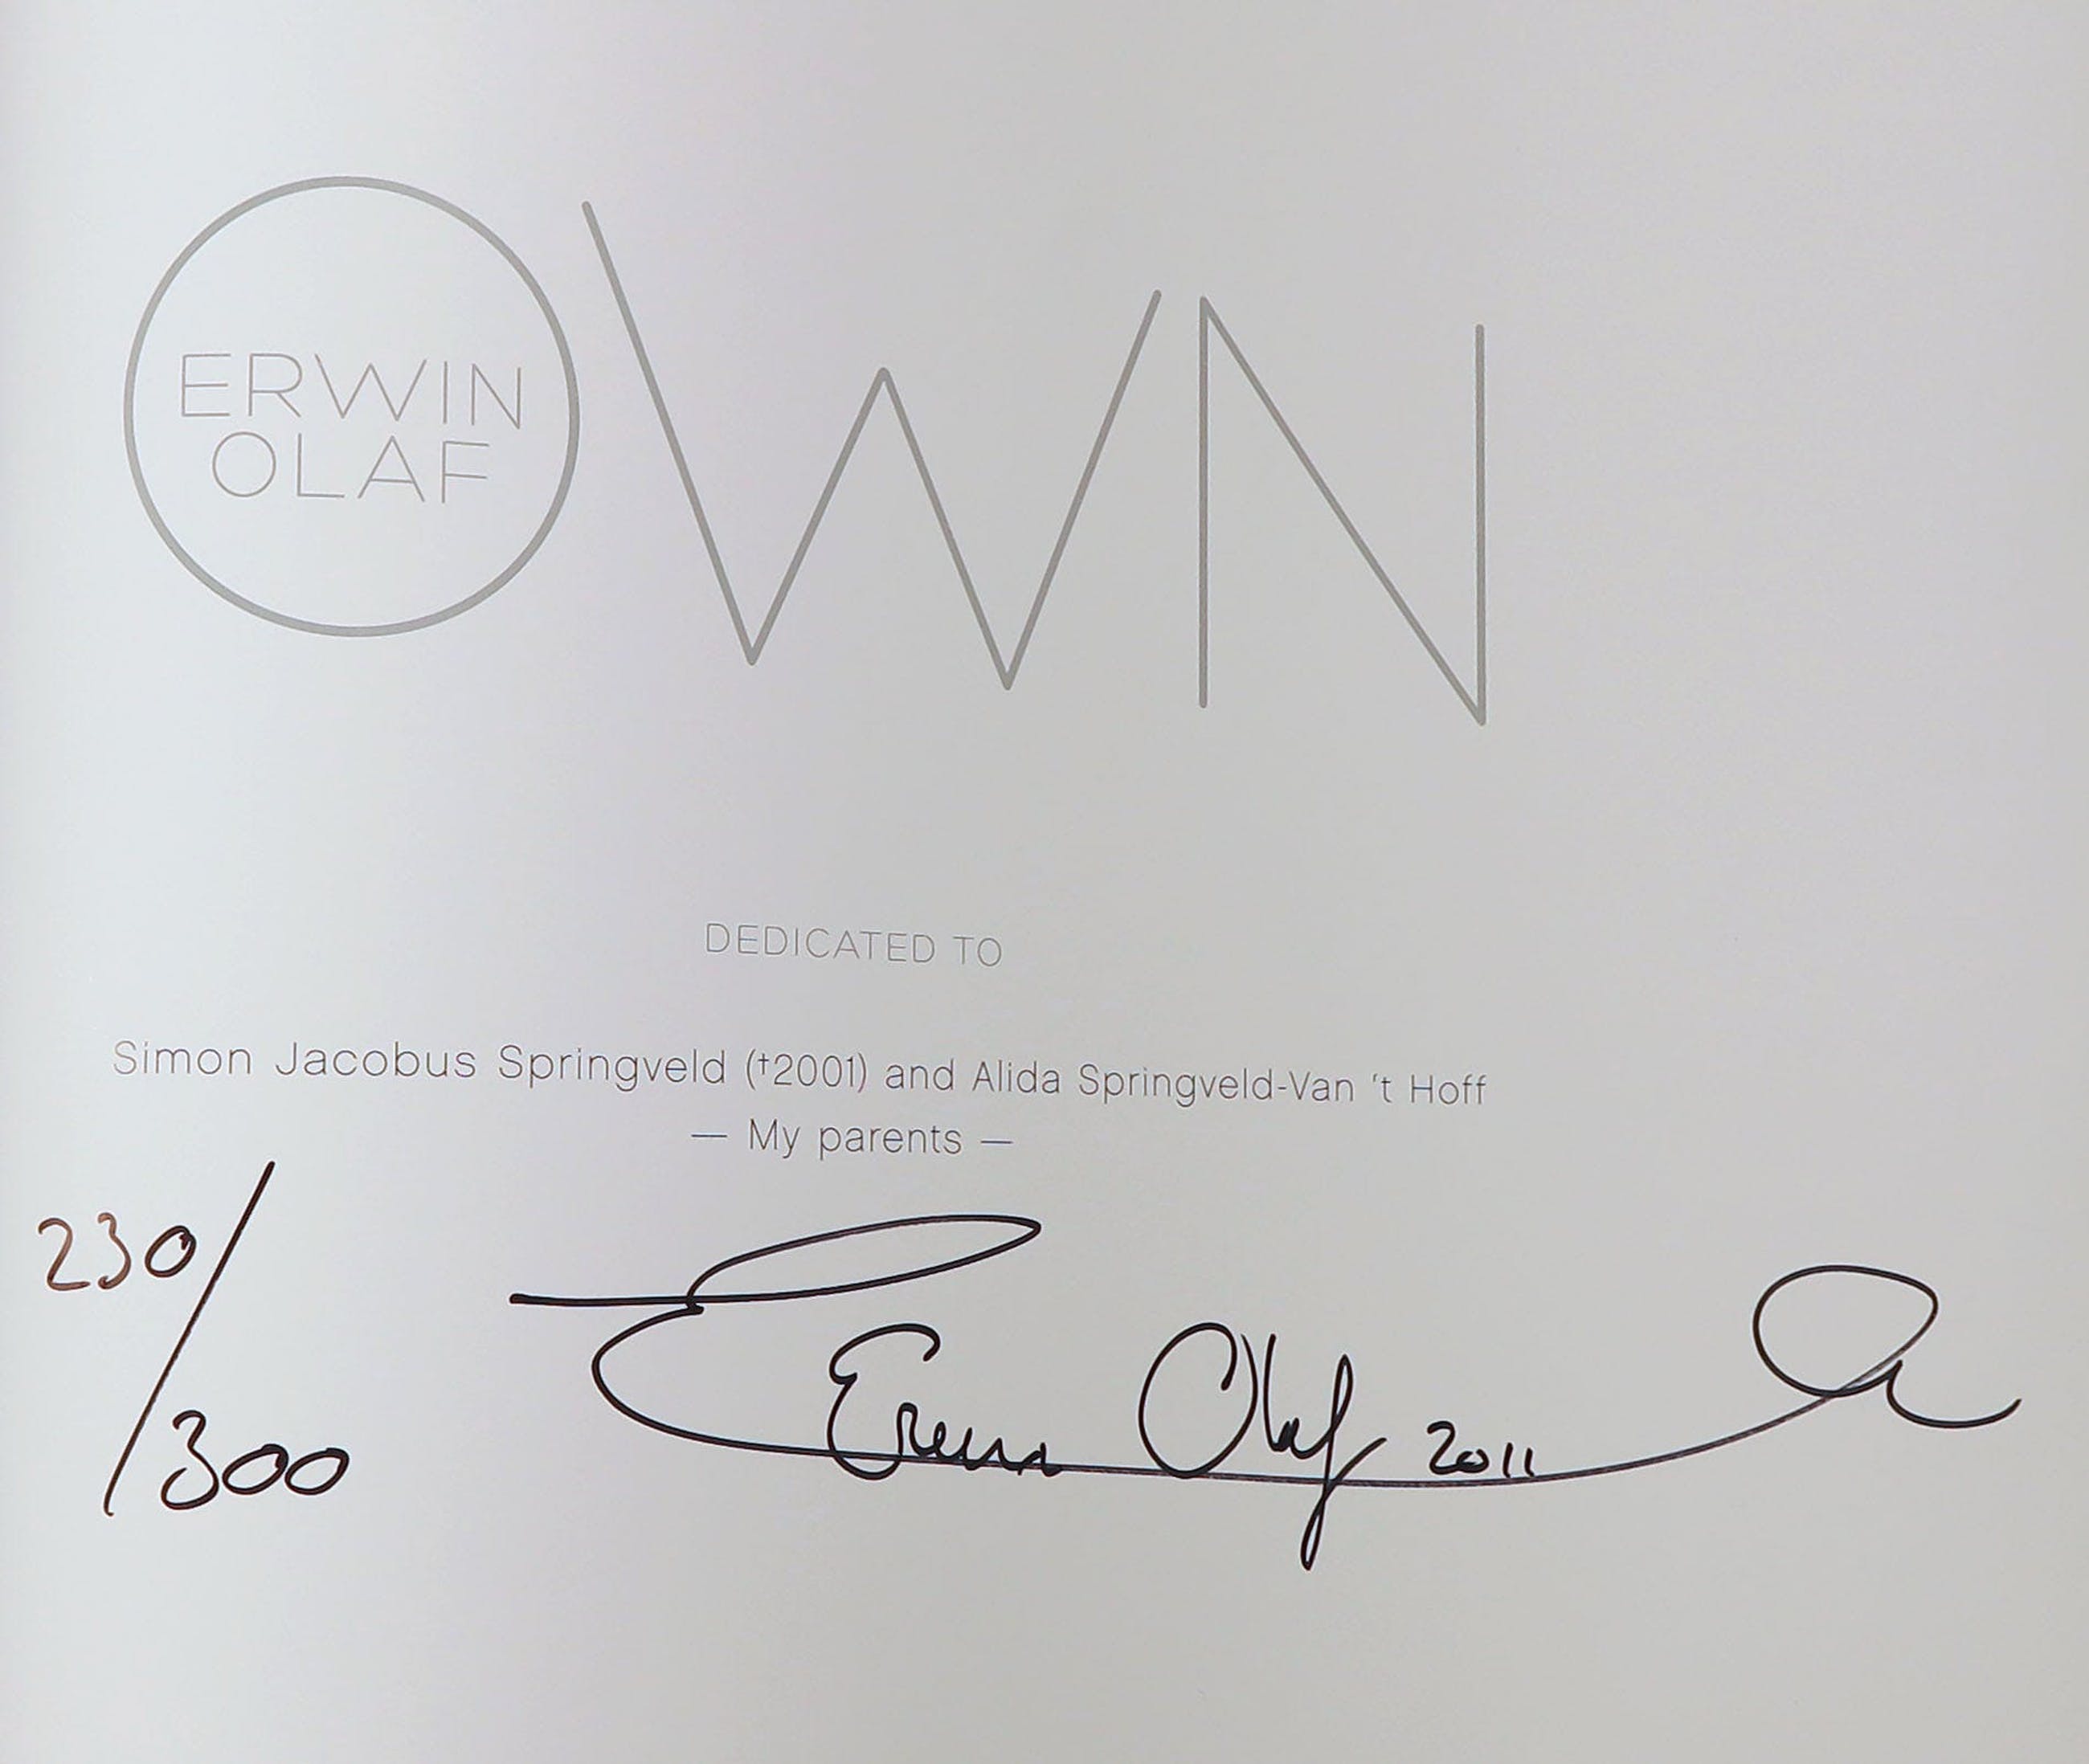 OWN
ERWIN
OLAF
DEDICATED TO
Simon Jacobus Springveld (†2001) and Alida Springveld-Van 't Hoff
— My parents —
230/300
Erwin Olaf 2011